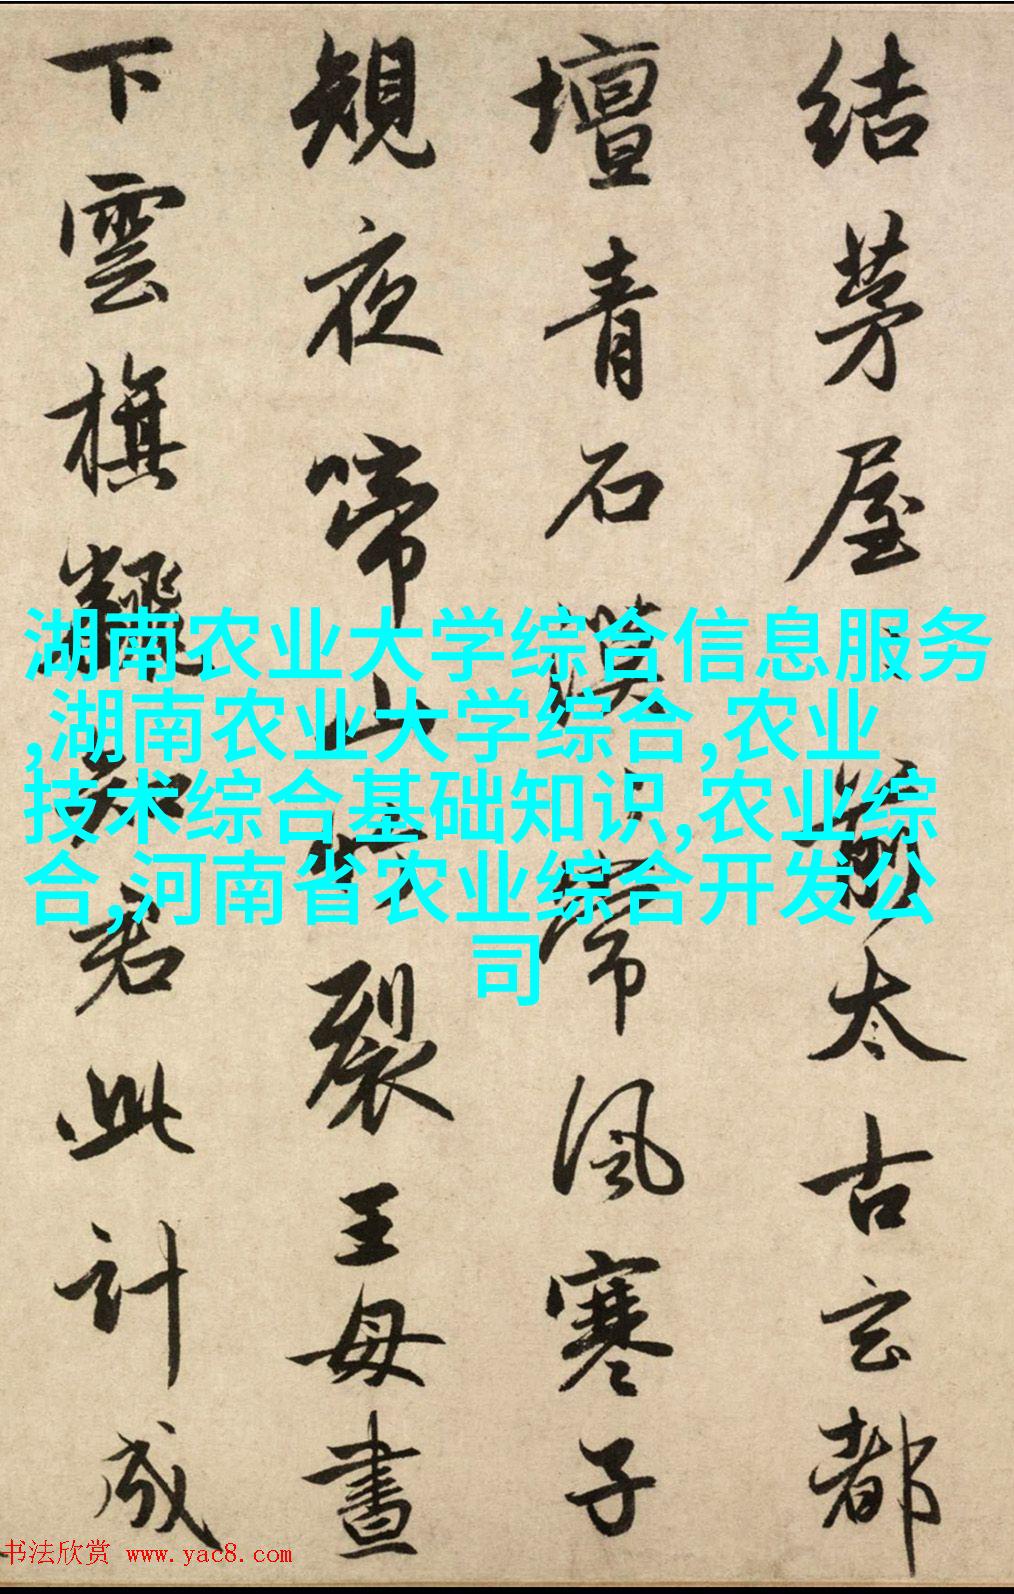 结茅屋々前太古玄都
壇青石漠々常風寒子
規夜啼山竹裂王母晝
下雲旗飜知君此計成
湖南农业大学综合信息服务
,湖南农业大学综合,农业
技术综合基础知识,农业综
合,河南省农业综合开发公
司
书法欣赏 www.yac8.com